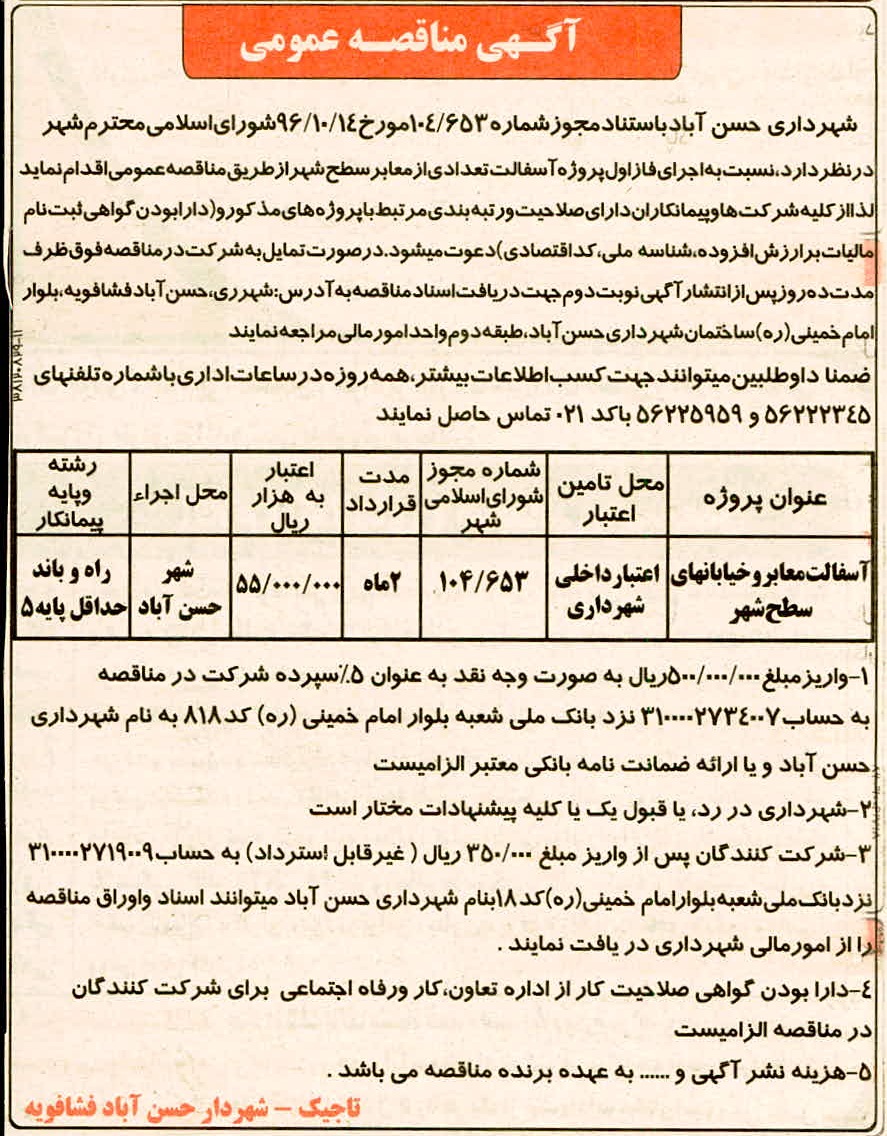 آگهی مناقصه عمومی
شهرداری حسن آباد باستناد مجوز شماره ۱۰٤/۶۵۳ مورخ ۹۶/۱۰/۱٤ شورای اسلامی محترم شهر
در نظر دارد، نسبت به اجرای فاز اول پروژه آسفالت تعدادی از معابر سطح شهر از طریق مناقصه عمومی اقدام نماید
لذا از کلیه شرکت ها و پیمانکاران دارای صلاحیت و رتبه بندی مرتبط با پروژه های مذکور و (دارا بودن گواهی ثبت نام
مالیات بر ارزش افزوده، شناسه ملی، کد اقتصادی) دعوت میشود. در صورت تمایل به شرکت در مناقصه فوق ظرف
مدت ده روز پس از انتشار آگهی نوبت دوم جهت دریافت اسناد مناقصه به آدرس: شهرری، حسن آباد فشافویه، بلوار
امام خمینی (ره) ساختمان شهرداری حسن آباد، طبقه دوم واحد امور مالی مراجعه نمایند
ضمنا داوطلبین میتوانند جهت کسب اطلاعات بیشتر، همه روزه در ساعات اداری با شماره تلفنهای
۵۶۲۲۲۳٤۵ و ۵۶۲۲۵۹۵۹ باکد ۰۲۱ تماس حاصل نمایند
عنوان پروژه | محل تامین اعتبار | شماره مجوز شورای اسلامی شهر | مدت قرارداد | اعتبار به هزار ریال | محل اجراء | رشته وپایه پیمانکار
آسفالت معابر و خیابانهای سطح شهر | اعتبار داخلی شهرداری | ۱۰۴/۶۵۳ | ۲ماه | ۵۵/۰۰۰/۰۰۰ | شهر حسن آباد | راه و باند حداقل پایه ۵
۱-واریز مبلغ ۵۰۰/۰۰۰/۰۰۰ ریال به صورت وجه نقد به عنوان ۵٪ سپرده شرکت در مناقصه
به حساب ۳۱۰۰۰۰۲۷۳٤۰۰۷ نزد بانک ملی شعبه بلوار امام خمینی (ره) کد ۸۱۸ به نام شهرداری
حسن آباد و یا ارائه ضمانت نامه بانکی معتبر الزامیست
۲-شهرداری در رد، یا قبول یک یا کلیه پیشنهادات مختار است
۳-شرکت کنندگان پس از واریز مبلغ ۳۵۰/۰۰۰ ریال ( غیرقابل استرداد) به حساب ۳۱۰۰۰۰۲۷۱۹۰۰۹
نزد بانک ملی شعبه بلوار امام خمینی (ره) کد ۱۸ بنام شهرداری حسن آباد میتوانند اسناد واوراق مناقصه
را از امورمالی شهرداری در یافت نمایند .
٤-دارا بودن گواهی صلاحیت کار از اداره تعاون، کار ورفاه اجتماعی برای شرکت کنندگان
در مناقصه الزامیست
۵-هزینه نشر آگهی و ...... به عهده برنده مناقصه می باشد .
تاجیک – شهردار حسن آباد فشافویه